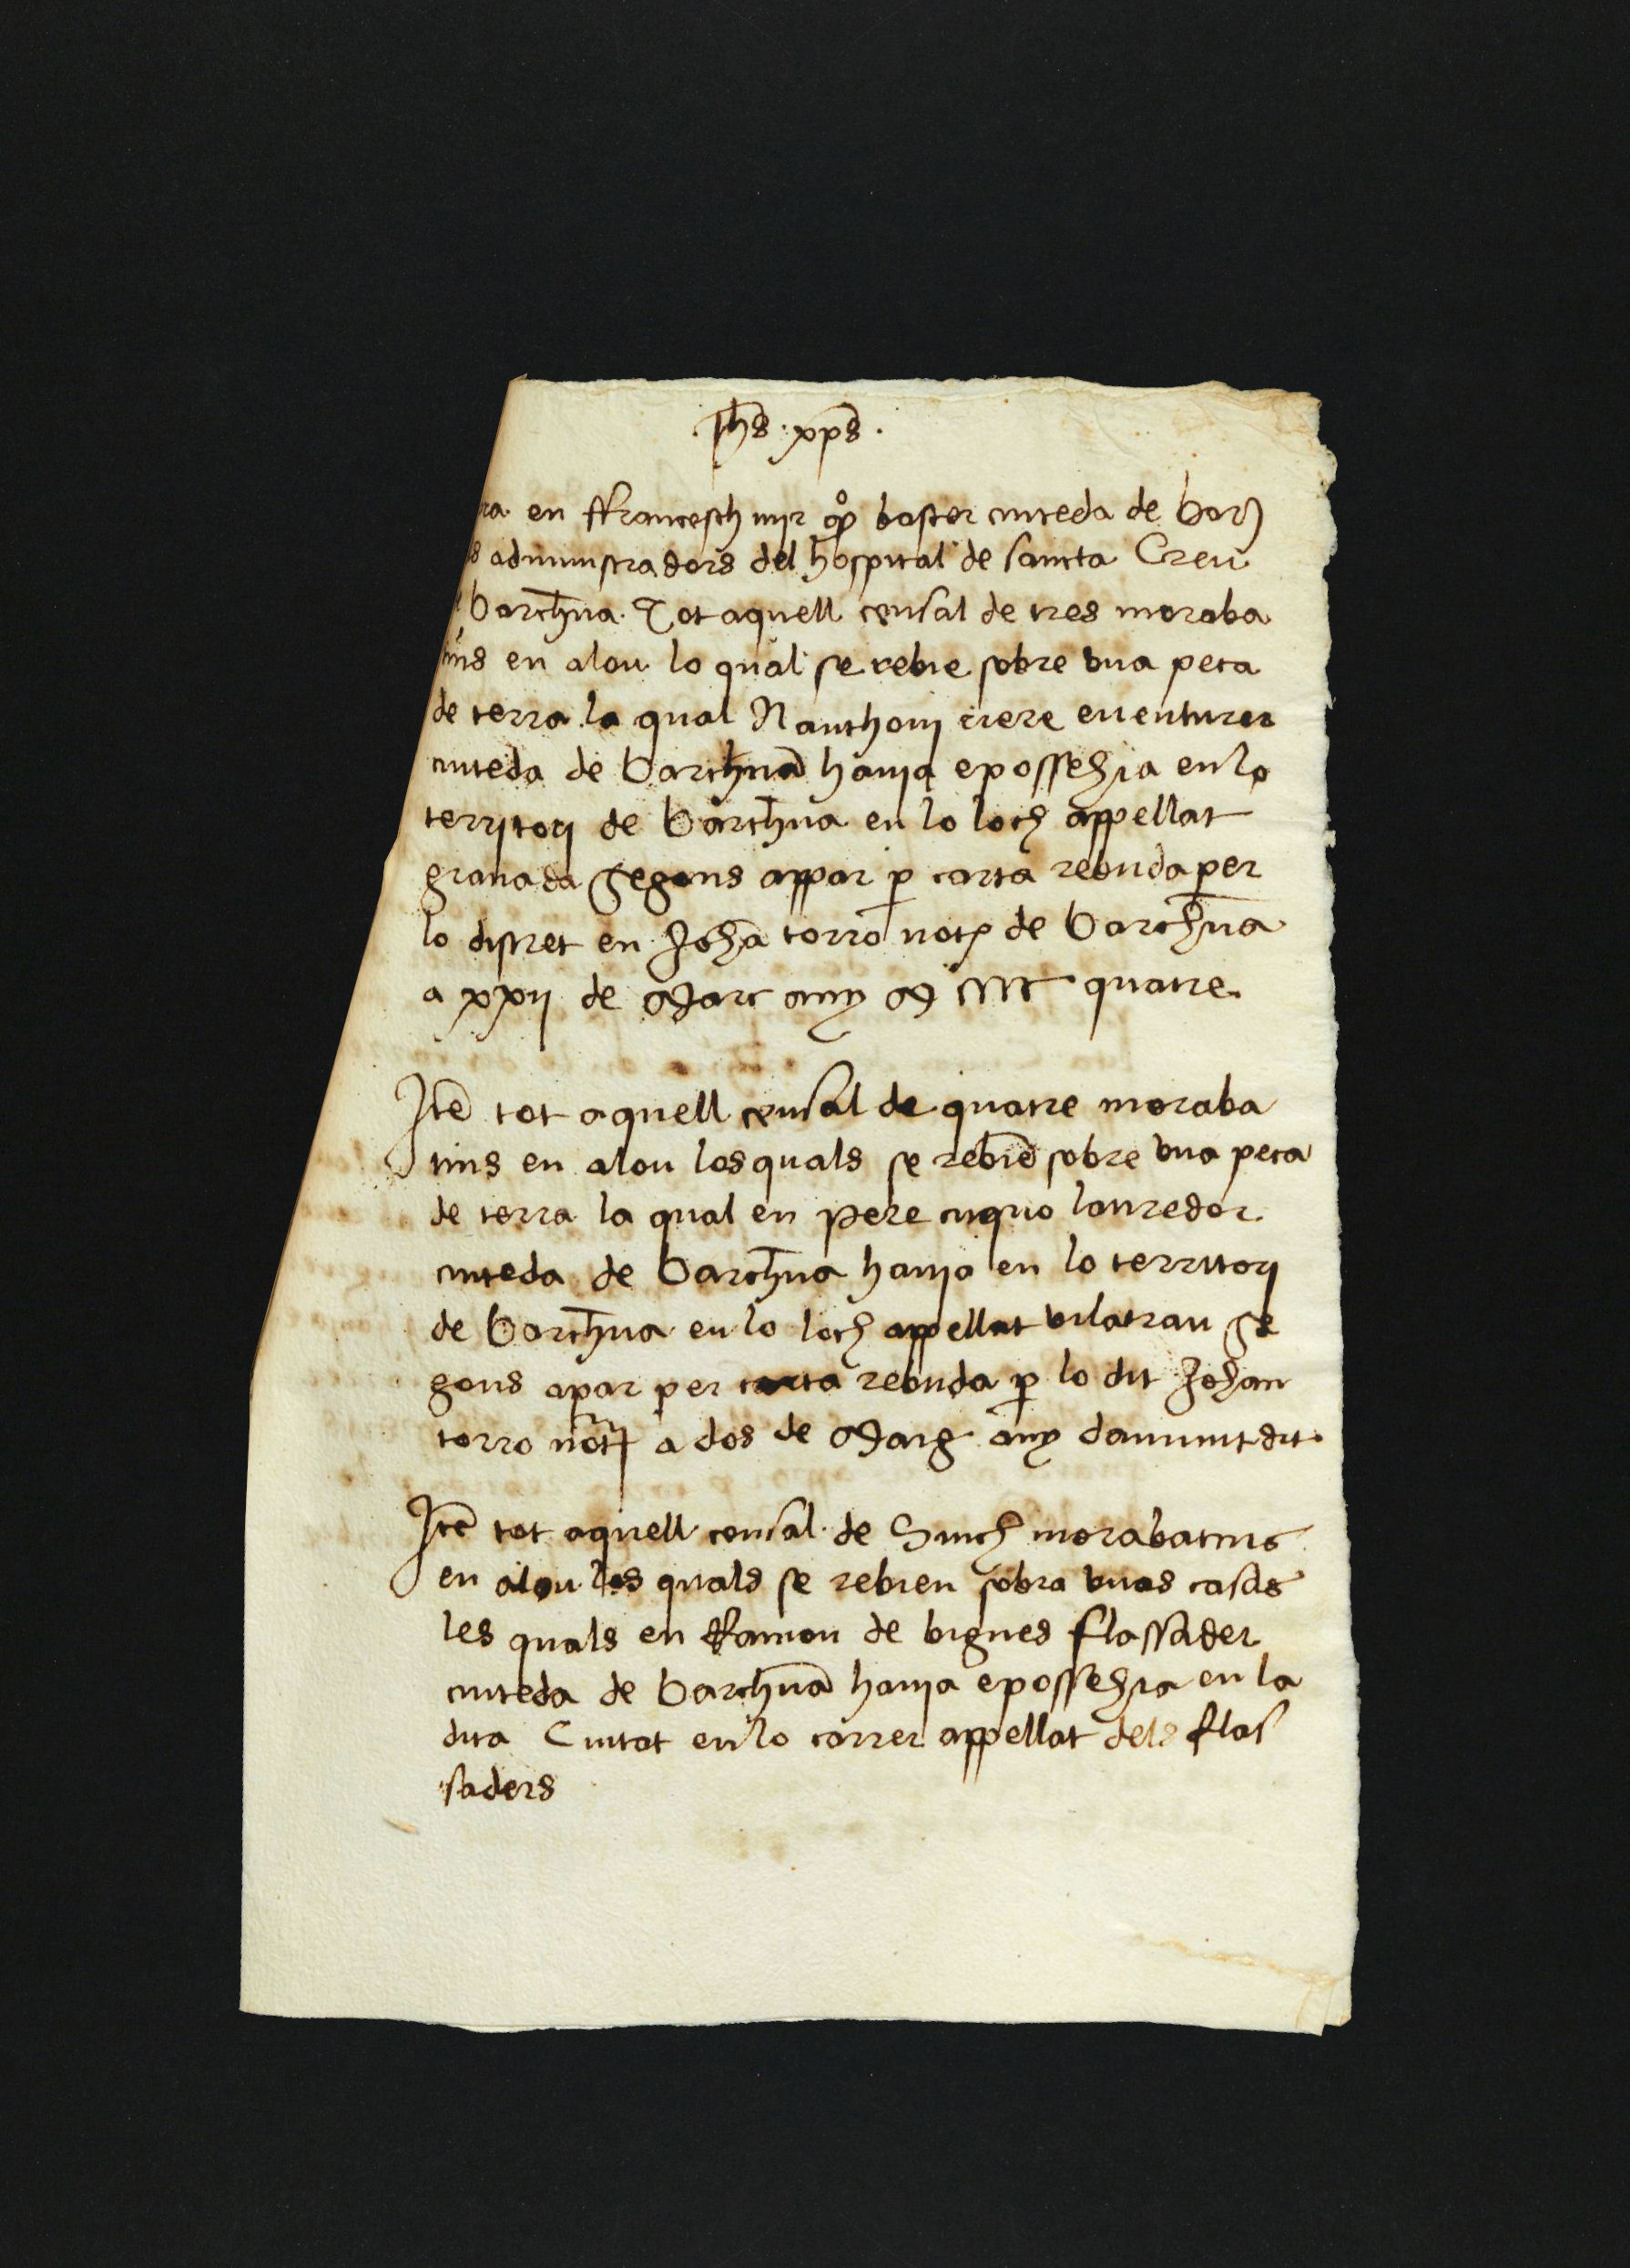 Jhs . xps .
ra en ffrancesch mir qº baster ciuteda de bar
s administradors del hospital de sancta Creu
barchna. Tot aquell censal de tres moraba
tins en alou lo qual se rebie sobre vna peca
de terra la qual Nanthoni euenturer
ciuteda de barchna hauia e possehia en lo
territori de barchna en lo loch appellat
granada segons appar p carta rebuda per
lo discret en Johã torro not de barchna
a xxii de Marc any M quatre
Jtẽ tot aquell censal de quatre moraba
tins en alou los quals se rebiẽ sobre vna peca
de terra la qual en pere lauredor
ciuteda de barchna hauia en lo territori
de barchna en lo loch appellat vilatrau se
gons apar per carta rebuda p lo dit Johan
torro not a dos de Marg any damuntdit
Jtẽ tot aquell censal de Sinch morabatins
en alou los quals se rebien sobra vnas casas
les quals en Ramon de vignes flassader
ciuteda de barchna hauia e possehia en la
dita Ciutat en lo carrer appellat dels flas
saders